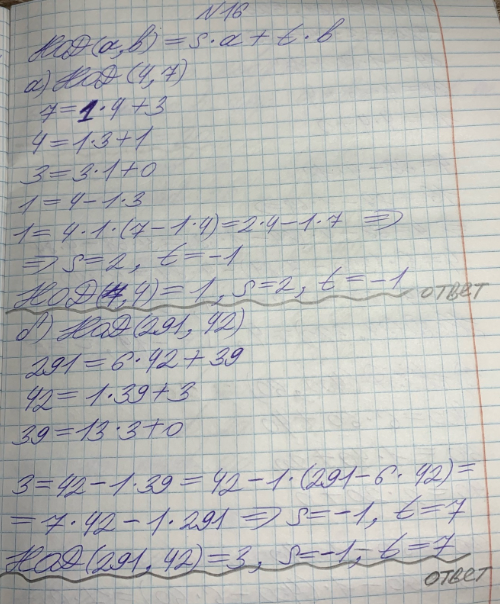 N16
НОД(a, b) = s·a + t·b
а) НОД (4, 7)
7 = 1·4 + 3
4 = 1·3 + 1
3 = 3·1 + 0
1 = 4 - 1·3
1 = 4·1·(7 - 1·4) = 2·4 - 1·7 ⇒
⇒ s = 2, t = -1
НОД(4, 4) = 1, s = 2, t = -1 ОТВЕТ
б) НОД (291, 42)
291 = 6·42 + 39
42 = 1·39 + 3
39 = 13·3 + 0
3 = 42 - 1·39 = 42 - 1·(291 - 6·42) =
= 7·42 - 1·291 ⇒ s = -1, t = 7
НОД (291, 42) = 3, s = -1, t = 7
ОТВЕТ